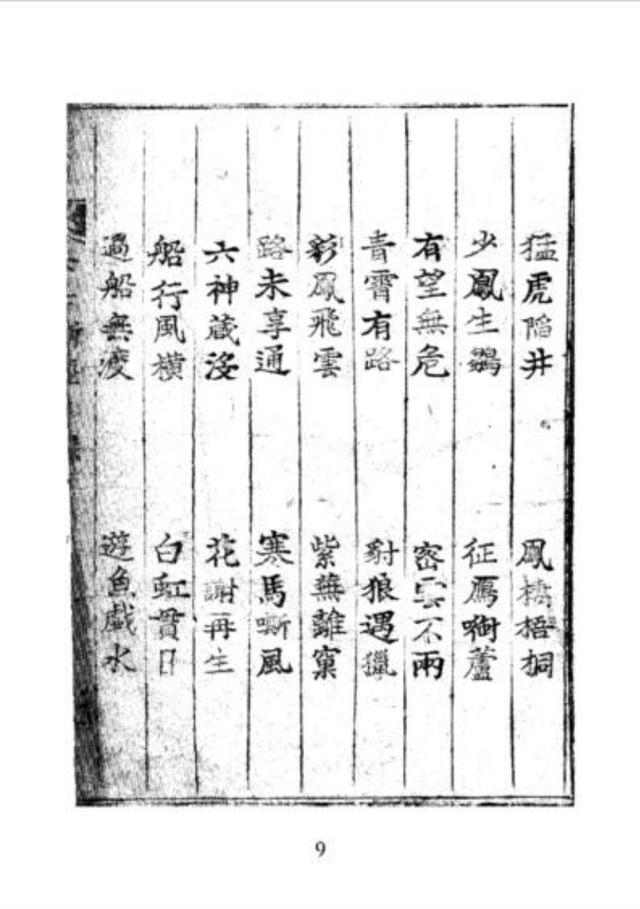 猛虎陷井　鳳棲梧桐
少鳳生　征鴈啣蘆
有望無危　密雲不兩
青霄有路　豺狼遇獵
彩鳳飛雲　紫燕離窠
路未享通　寒馬嘶風
六神藏沒　花謝再生
船行風橫　白虹貫日
過船無渡　遊魚戲水
9